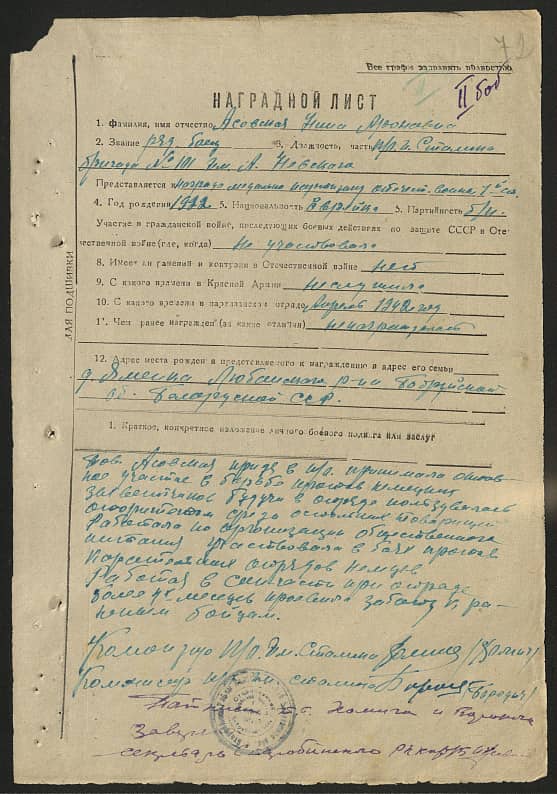 72
Все графы заполнять полностью
II
НАГРАДНОЙ ЛИСТ
1. Фамилия, имя отчество Асовская Нина Ароновна
2. Звание ряд. боец 3. Должность, часть п/о. и. Сталина
бригада № 101 им. А. Невского
Представляется награде медалью партизану отечест. война
4. Год рождения 1922 5. Национальность Еврейка 5. Партийность б/п.
Участие в гражданской войне, последующих боевых действиях по защите СССР и Оте-
чественной войне (где, когда) не участвовала
8. Имеет ли ранения и контузии в Отечественной войне нет
9. С какого времени в Красной Армии неслужила
10. С какого времени в партизанском отряде Апрель 1942 год
11. Чем ранее награжден (за какие отличия) ненаграждалась
ДЛЯ ПОДШИВКИ
12. Адрес места рождения представляемого к награждению и адрес его семьи
д. Яменка Любанского р-на Бобруйской
об. Белорусской ССР.
1. Краткое, конкретное изложение личного боевого подвига или заслуг
Тов. Асовская придя в п/о. принимала
участие в борьбе против немецких
захватчиков будучи в отряде пользувалась
авторитетом среди остальных товарищей
Работала по организации общественного
питания участвовала в боях против
отрядов немцев
Работая в санчасти при отряде
более месяцев проявила заботу к ра-
неным бойцам.
Командир п/о. им. Сталина
Комиссар п/о им. Сталина
и
секретарь РК КП(б)Б